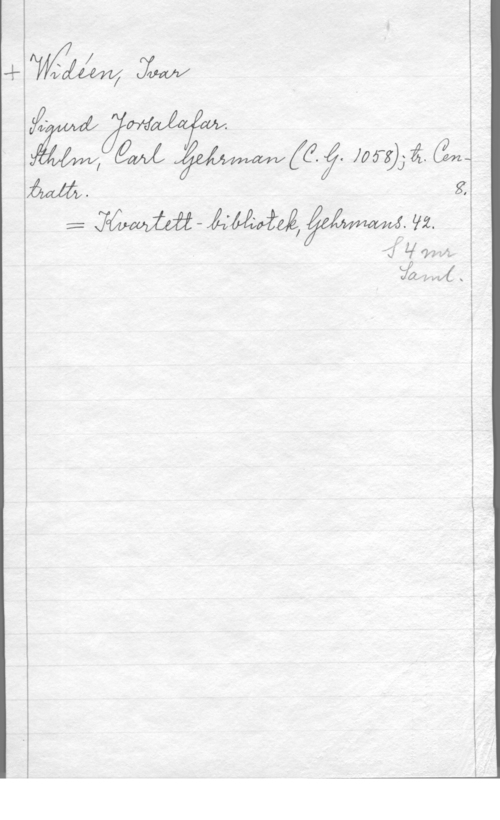 + Widéen, Ivar
Sigurd Jorsalafar.
Sthlm, Carl Gehrman (C. G. 1058); tr. Cen-
traltr. 8.
= Kvartett-bibliotek, Gehrmans. 42.
S 4 mr
Saml.